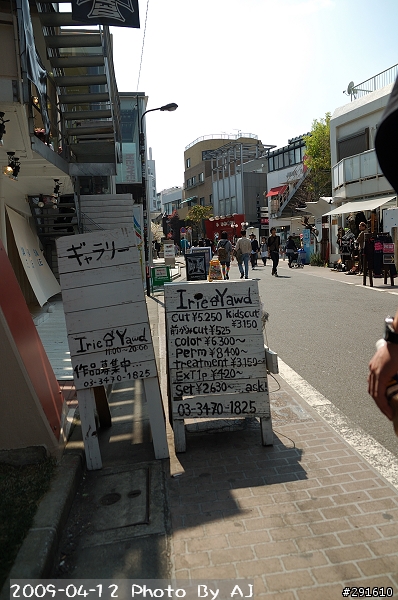 ギャラリー
Irie & Yawd
11:00~20:00
作品募集中
03-3470-1825
Irie & Yawd
CUT ¥5,250 Kidscut ¥3150
前がみcut ¥525
color ¥6,300~
Perm ¥8400~
treatment ¥3,150~
ExTIP ¥420~
set ¥2630~ ask
03-3470-1825
2009-04-12 Photo By AJ
#291610